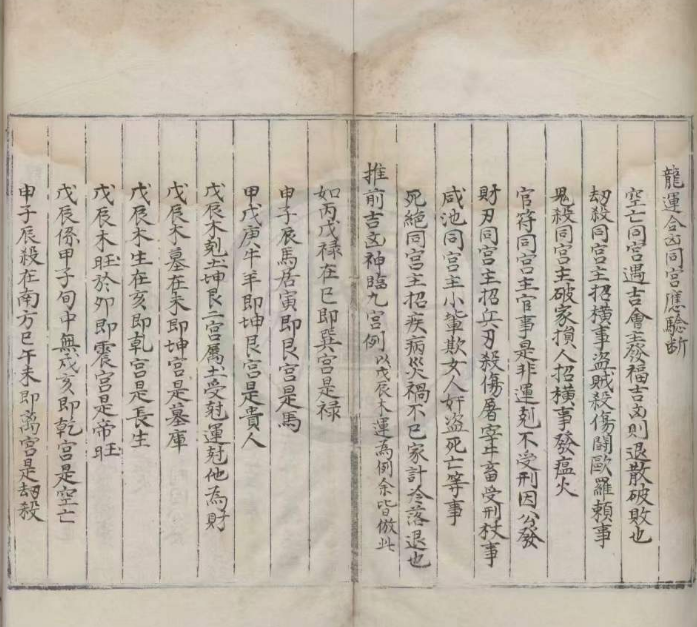 龍運合凶同宮應驗斷
空亡同宮遇吉會主發福吉凶則退散破敗也
刼殺同宮主招橫事盗賊殺傷鬪歐羅賴事
鬼殺同宮主破家損人招橫事發瘟火
官符同宮主官事是非運剋不受刑因公發
財刃同宮主招兵刃殺傷屠宰牛畜受刑杖事
咸池同宮主小輩欺女人奸盗死亡等事
死絕同宮主招疾病災禍不已家計冷落退也
推前吉凶神臨九宮例 以戊辰木運為例余皆倣此
如丙戊禄在巳即巽宮是禄
申子辰馬居寅即艮宮是馬
甲戊庚牛羊即坤艮宮是貴人
戊辰木剋土坤艮二宮属土受尅運尅他為財
戊辰木墓在未即坤宮是墓庫
戊辰木生在亥即乹宮是長生
戊辰木旺於夘即震宮是帝旺
戊辰係甲子旬中無戌亥即乾宮是空亡
申子辰殺在南方巳午未即离宮是刼殺